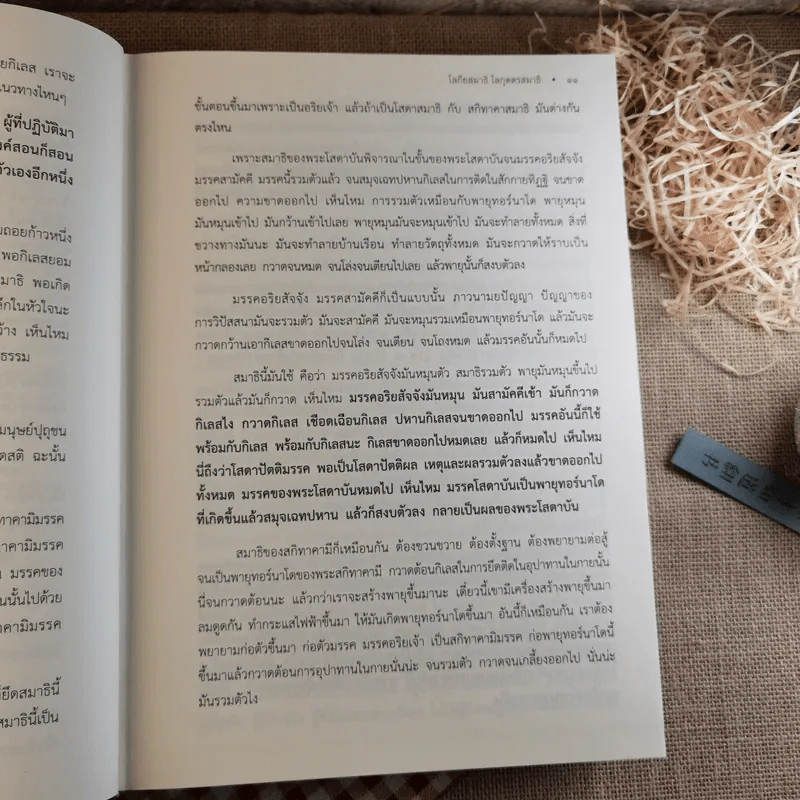 ยกิเลส เราจะ
แนวทางไหนๆ
ผู้ที่ปฏิบัติมา
งค์สอนก็สอน
ตัวเองอีกหนึ่ง
มถอยก้าวหนึ่ง
พอกิเลสยอม
าธิ พอเกิด
ล็กในหัวใจนะ
ว้าง เห็นไหม
ธรรม
มนุษย์ปุถุชน
ดสติ ฉะนั้น
กทาคามิมรรค
คามิมรรค
มรรคของ
นนั้นไปด้วย
าคามิมรรค
ยึดสมาธินี้
สมาธินี้เป็น
โลกียสมาธิ โลกุตตรสมาธิ • ๑๑
ขั้นตอนขึ้นมาเพราะเป็นอริยเจ้า แล้วถ้าเป็นโสดาสมาธิ กับ สกิทาคาสมาธิ มันต่างกัน
ตรงไหน
เพราะสมาธิของพระโสดาบันพิจารณาในขั้นของพระโสดาบันจนมรรคอริยสัจจัง
มรรคสามัคคี มรรคนี้รวมตัวแล้ว จนสมุจเฉทปหานกิเลสในการติดในสักกายทิฏฐิ จนขาด
ออกไป ความขาดออกไป เห็นไหม การรวมตัวเหมือนกับพายุทอร์นาโด พายุหมุน
มันหมุนเข้าไป มันกว้านเข้าไปเลย พายุหมุนมันจะหมุนเข้าไป มันจะทำลายทั้งหมด สิ่งที่
ขวางทางมันนะ มันจะทำลายบ้านเรือน ทำลายวัตถุทั้งหมด มันจะกวาดให้ราบเป็น
หน้ากลองเลย กวาดจนหมด จนโล่งจนเตียนไปเลย แล้วพายุนั้นก็สงบตัวลง
มรรคอริยสัจจัง มรรคสามัคคีก็เป็นแบบนั้น ภาวนามยปัญญา ปัญญาของ
การวิปัสสนามันจะรวมตัว มันจะสามัคคี มันจะหมุนรวมเหมือนพายุทอร์นาโด แล้วมันจะ
กวาดกว้านเอากิเลสขาดออกไปจนโล่ง จนเตียน จนโถงหมด แล้วมรรคอันนั้นก็หมดไป
สมาธินี้มันใช้ คือว่า มรรคอริยสัจจังมันหมุนตัว สมาธิรวมตัว พายุมันหมุนขึ้นไป
รวมตัวแล้วมันก็กวาด เห็นไหม มรรคอริยสัจจังมันหมุน มันสามัคคีเข้า มันก็กวาด
กิเลสไง กวาดกิเลส เชือดเฉือนกิเลส ปหานกิเลสจนขาดออกไป มรรคอันนี้ก็ใช้
พร้อมกับกิเลส พร้อมกับกิเลสนะ กิเลสขาดออกไปหมดเลย แล้วก็หมดไป เห็นไหม
นี่ถึงว่าโสดาปัตติมรรค พอเป็นโสดาปัตติผล เหตุและผลรวมตัวลงแล้วขาดออกไป
ทั้งหมด มรรคของพระโสดาบันหมดไป เห็นไหม มรรคโสดาบันเป็นพายุทอร์นาโด
ที่เกิดขึ้นแล้วสมุจเฉทปหาน แล้วก็สงบตัวลง กลายเป็นผลของพระโสดาบัน
สมาธิของสกิทาคามีก็เหมือนกัน ต้องขวนขวาย ต้องตั้งฐาน ต้องพยายามต่อสู้
จนเป็นพายุทอร์นาโดของพระสกิทาคามี กวาดต้อนกิเลสในการยึดติดในอุปาทานในกายนั้น
นี่จนกวาดต้อนนะ แล้วกว่าเราจะสร้างพายุขึ้นมานะ เดี๋ยวนี้เขามีเครื่องสร้างพายุขึ้นมา
ลมดูดกัน ทำกระแสไฟฟ้าขึ้นมา ให้มันเกิดพายุทอร์นาโดขึ้นมา อันนี้ก็เหมือนกัน เราต้อง
พยายามก่อตัวขึ้นมา ก่อตัวมรรค มรรคอริยเจ้า เป็นสกิทาคามิมรรค ก่อพายุทอร์นาโดนี้
ขึ้นมาแล้วกวาดต้อนการอุปาทานในกายนั่นน่ะ จนรวมตัว กวาดจนเกลี้ยงออกไป นั่นน่ะ
มันรวมตัวไง